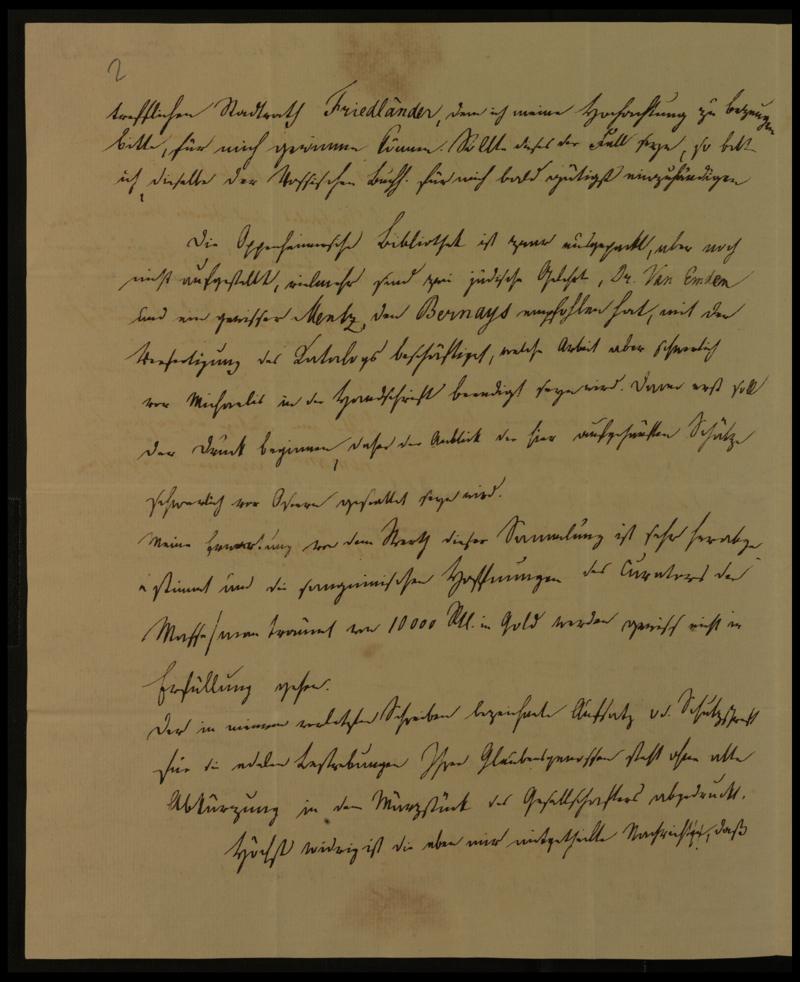 2
trefflichen Stadtrath Friedländer, dem ich meine Hochachtung zu bezeugen
bitte, für mich gewinnen können. Sollte dieses der Fall seyn, so bitte
ich, dieselbe der Vossischen Buchh. für mich bald gütigst einzuhändigen
Die Oppenheimersche Bibliothek ist zwar ausgepackt, aber noch
nicht aufgestellt, vielmehr sind zwei jüdische Gelehrte, Dr. Van Emden
und ein gewisser Mentz, den Bernays empfohlen hat, mit der
Verfertigung des Catalogs beschäftiget, welche Arbeit aber schwerlich
vor Michaelis in der Handschrift beendigt seyn wird. Dann erst soll
der Druck beginnen, daher der Anblick der hier aufgehäuften Schätze
schwerlich vor Ostern gestattet seyn wird.
Meine Erwartung von dem Werth dieser Sammlung ist sehr herabge
stimmt und die sanguinischen Hoffnungen des Curators der
Masse/man träumt von 10000 Rtl. in Gold werden gewiss nicht in
Erfüllung gehen.
Der in meinem vorletzten Schreiben bezeichnete Aufsatz u. d. Schutzschrift
für die edelen Bestrebungen Ihrer Glaubensgenossen steht ohne alle
Abkürzung in dem Märzstück des Gesellschafters abgedruckt.
Höchst widrig ist die eben mir mitgetheilte Nachricht, daß